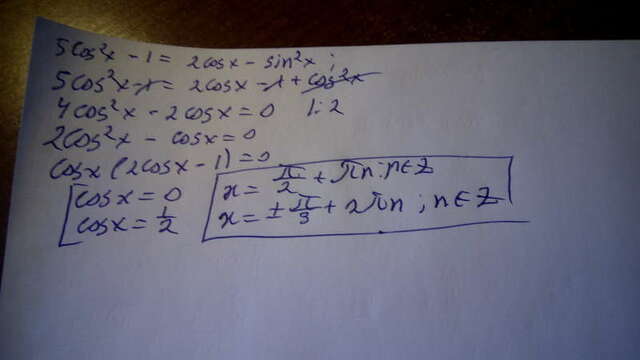 5cos²x - 1 = 2cosx - sin²x;
5cos²x - 1 = 2cosx - 1 + cos²x
4cos²x - 2cosx = 0 |:2
2cos²x - cosx = 0
cosx (2cosx - 1) = 0
[cosx = 0
cosx = 1/2
x = π/2 + πn; n∈Z
x = ±π/3 + 2πn ; n∈Z